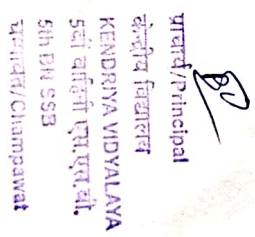 प्राचार्य/Principal
केन्द्रीय विद्यालय
KENDRIYA VIDYALAYA
5वीं वाहिनी एस.एस.बी.
5th BN SSB
चम्पावत/Champawat